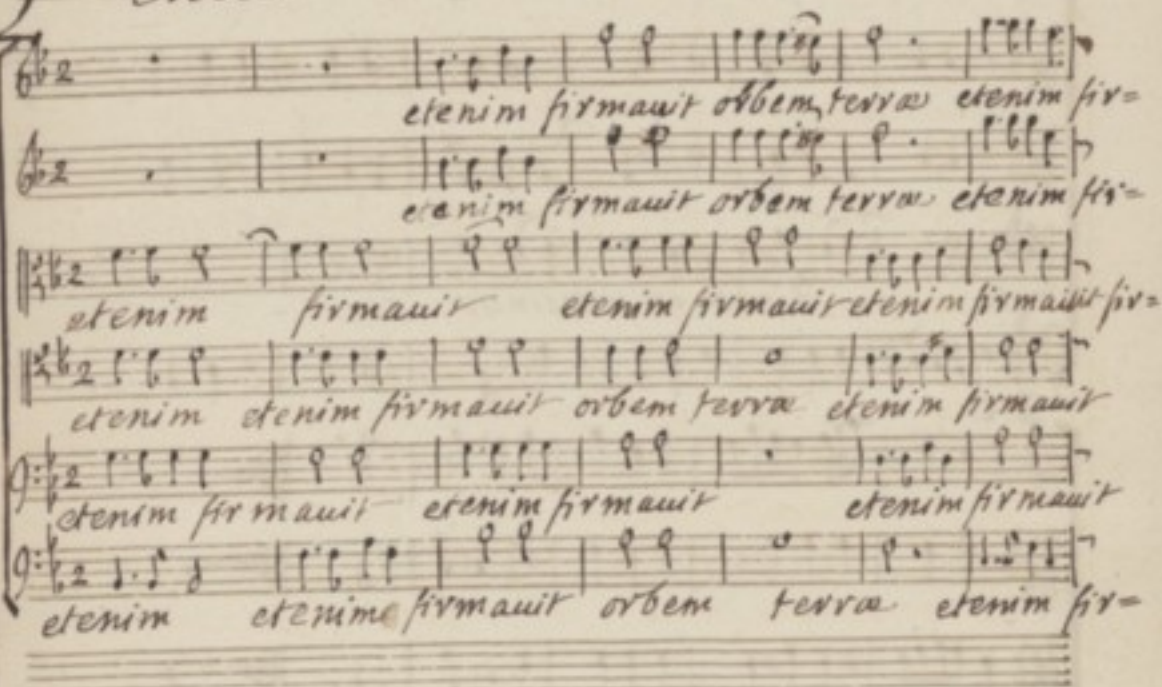 etenim firmauit orbem terræ etenim fir=
etenim firmauit orbem terræ etenim fir=
etenim firmauit etenim firmauit etenim firmauit fir=
etenim etenim firmauit orbem terræ etenim firmauit
etenim firmauit etenim firmauit etenim firmauit
etenim etenim firmauit orbem terræ etenim fir=